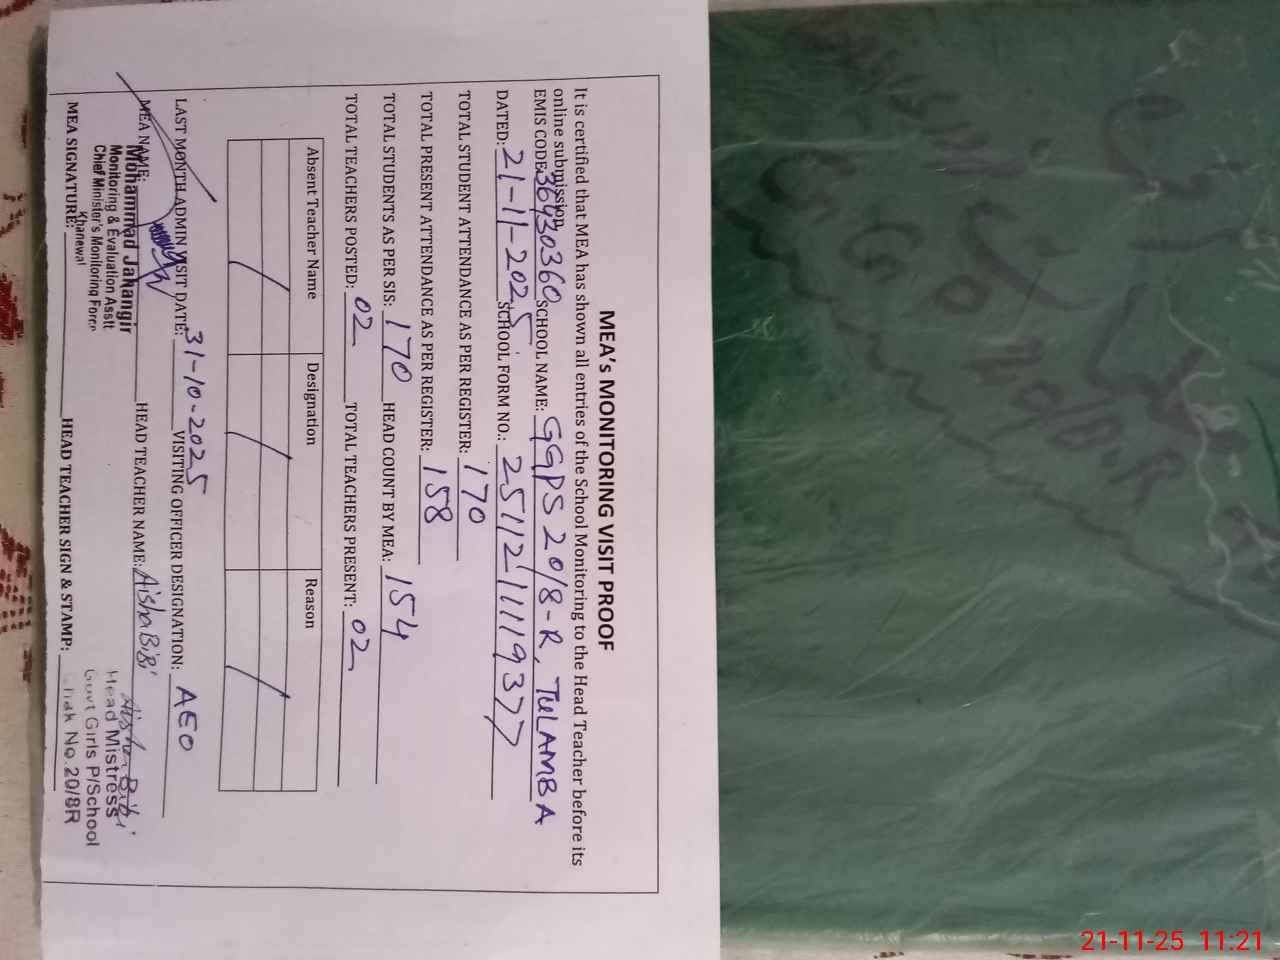 MEA's MONITORING VISIT PROOF
It is certified that MEA has shown all entries of the School Monitoring to the Head Teacher before its
online submission.
EMIS CODE: 36430360 SCHOOL NAME: GGPS 20/8-R, TULAMBA
DATED: 21-11-2025. SCHOOL FORM NO.: 2511211119377
TOTAL STUDENT ATTENDANCE AS PER REGISTER: 170
TOTAL PRESENT ATTENDANCE AS PER REGISTER: 158
TOTAL STUDENTS AS PER SIS: 170 HEAD COUNT BY MEA: 154
TOTAL TEACHERS POSTED: 02 TOTAL TEACHERS PRESENT: 02
Absent Teacher Name Designation Reason
/ / /
LAST MONTH ADMIN VISIT DATE: 31-10-2025 VISITING OFFICER DESIGNATION: AEO
MEA NAME: HEAD TEACHER NAME: Aisha Bibi
Mohammad Jahangir
Monitoring & Evaluation Asstt
Chief Minister's Monitoring Force
Khanewal
Aisha Bibi
Head Mistress
Govt Girls P/School
Chak No. 20/8R
MEA SIGNATURE: HEAD TEACHER SIGN & STAMP:
20/8R
21-11-25 11:21